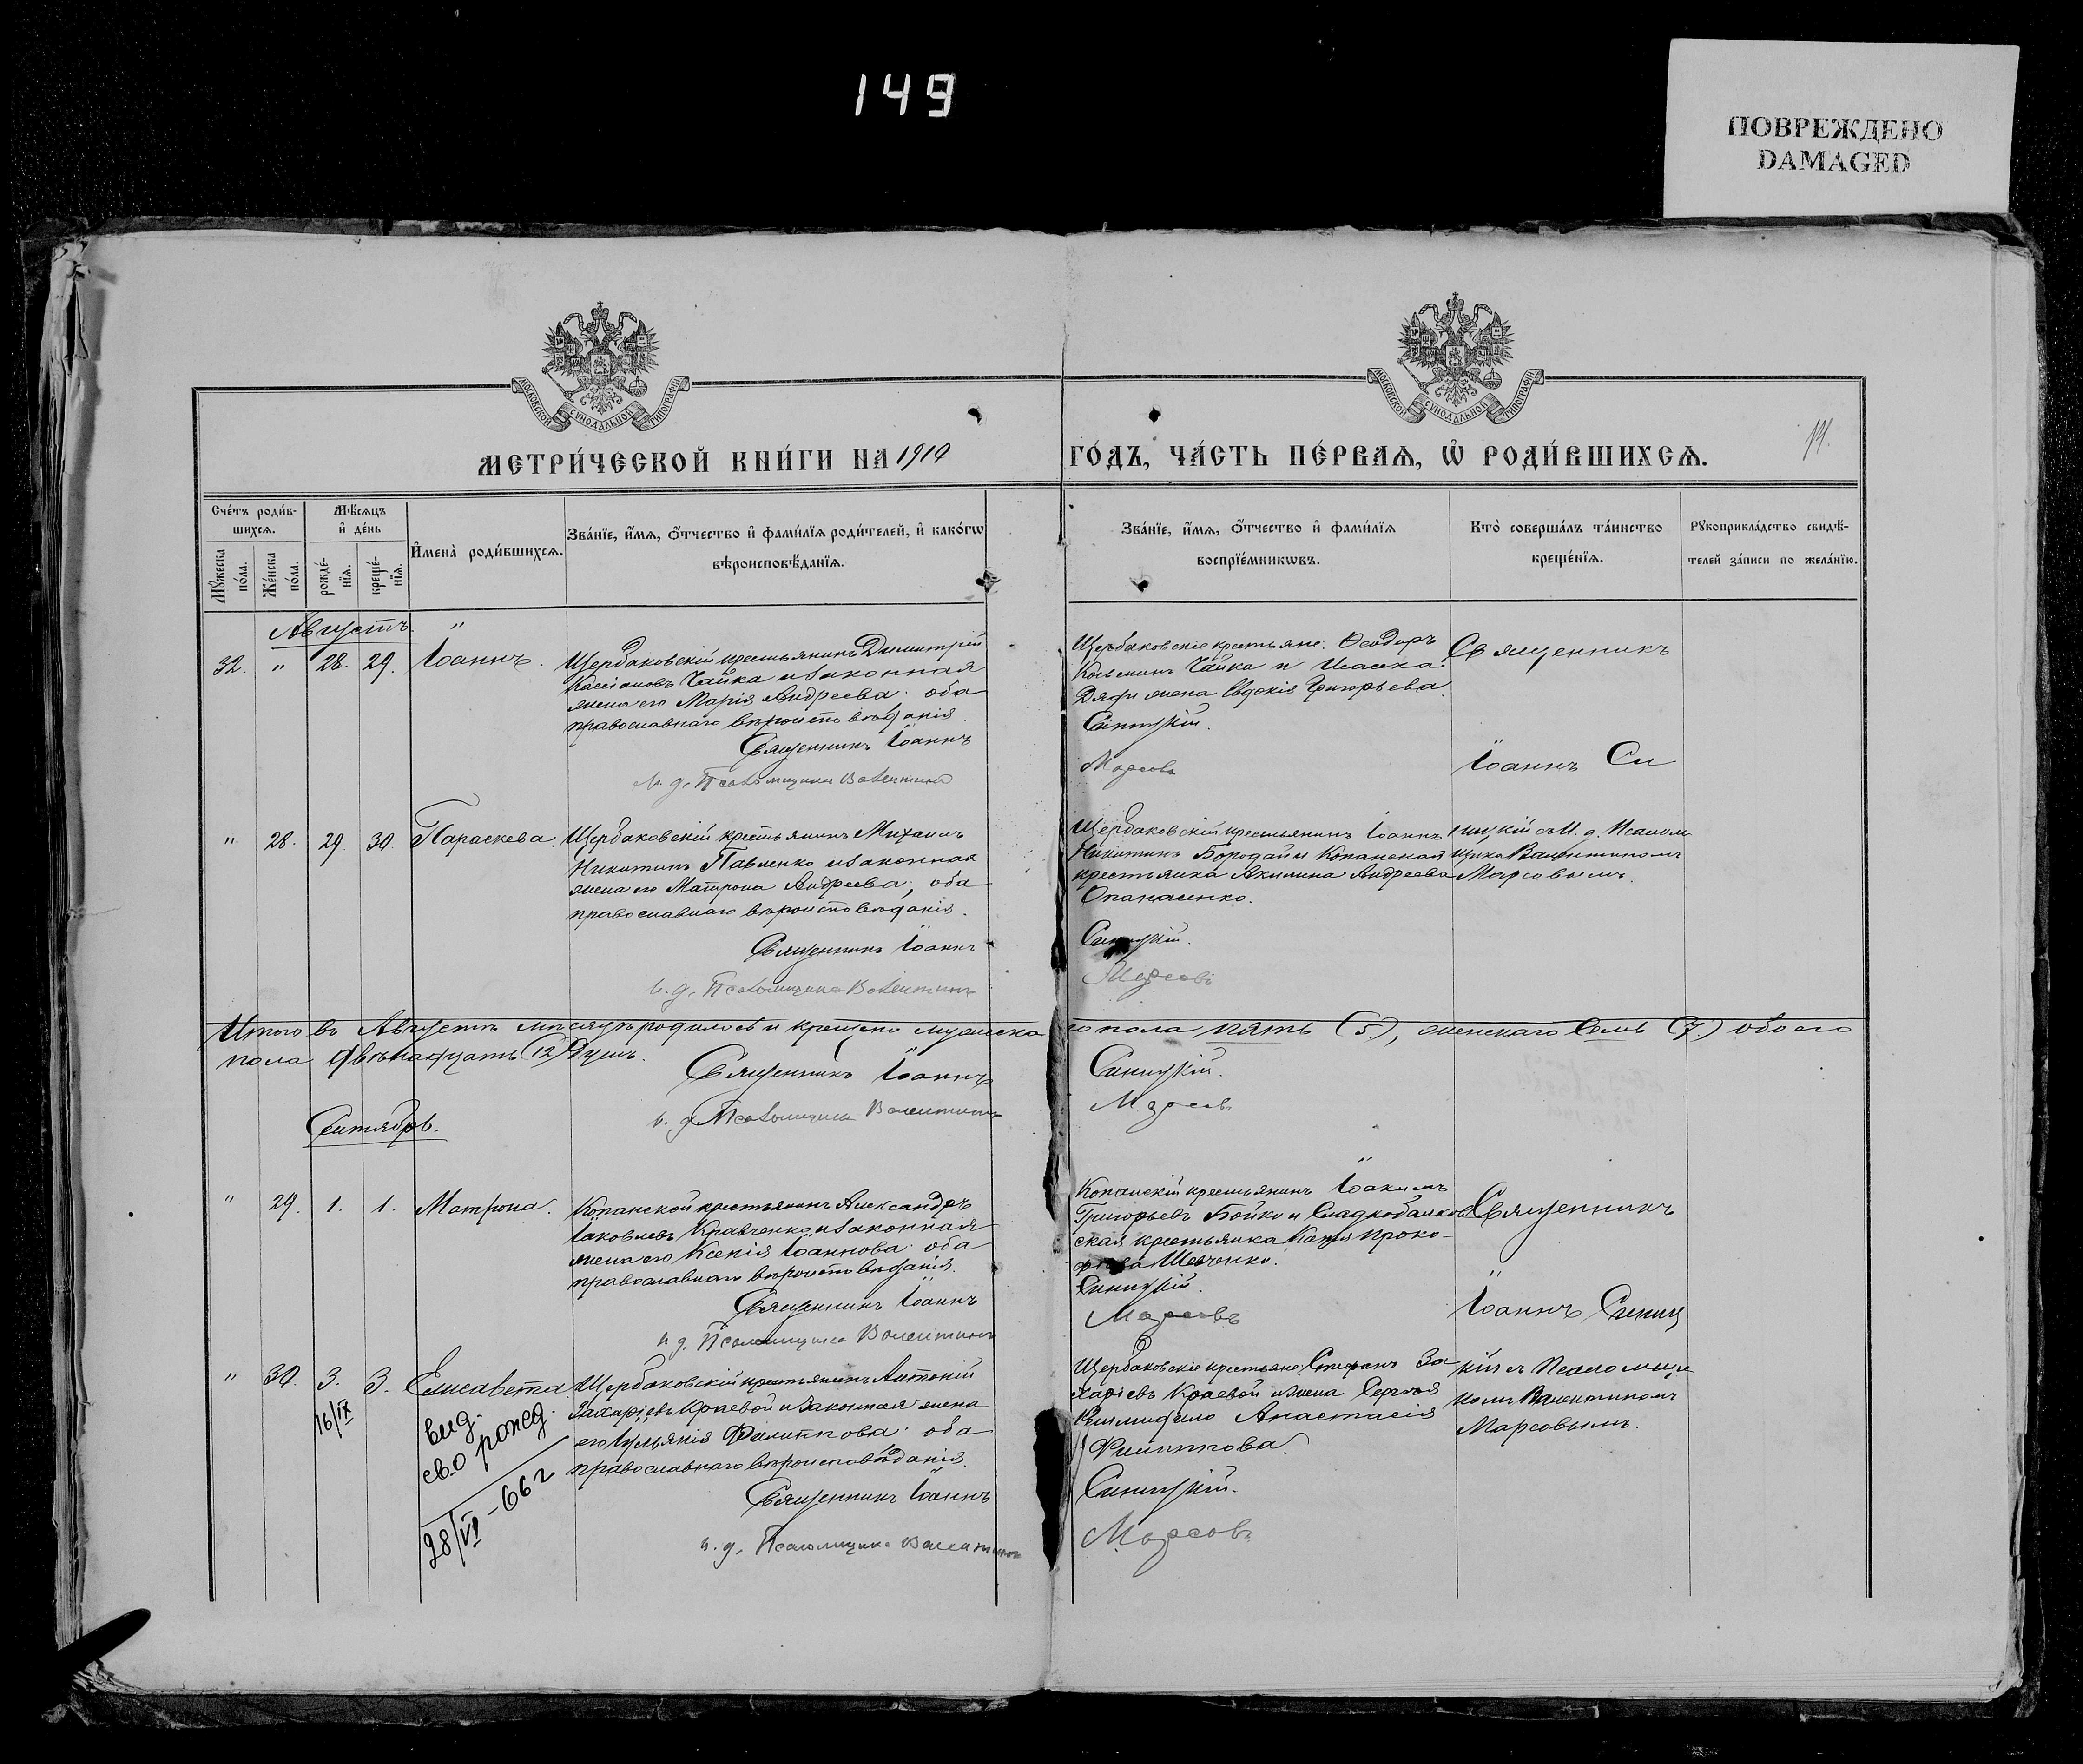 149
ПОВРЕЖДЕНО
DAMAGED
МОСКОВСКОЙ СѴНОДАЛЬНОЙ ТИПОГРАФІИ
МОСКОВСКОЙ СѴНОДАЛЬНОЙ ТИПОГРАФІИ
МЕТРИ́ЧЕСКОЙ КНИ́ГИ НА 1910
ГО́ДЪ, ЧА́СТЬ ПЕ́РВАѦ, Ѡ҆ РОДИ́ВШИХСѦ.
Сче́тъ роди́в-
шихсѧ.
Мꙋ́жеска
по́ла.
Же́нска
по́ла.
Мѣ́сѧцъ
и҆ де́нь
рожде́-
нїѧ.
креще́-
нїѧ.
И҆мена̀ роди́вшихсѧ.
Зва́нїе, и҆́мѧ, ѻ҆́тчество и҆ фами́лїѧ роди́телей, и҆ како́гѡ
вѣроисповѣ́данїѧ.
Зва́нїе, и҆́мѧ, ѻ҆́тчество и҆ фами́лїѧ
воспрїе́мникѡвъ.
Кто̀ соверша́лъ та́инство
креще́нїѧ.
Рꙋкоприкла́дство свидѣ́-
телей за́писи по жела́нїю.
Августъ.
32. " 28. 29. Іоаннъ.
Щербаковскій крестьянинъ Димитрій
Кассіановъ Чайка и законная
жена его Марія Андреева. оба
православнаго вѣроисповѣданія.
Священникъ Іоаннъ
и. д. Псаломщика Валентинъ
Щербаковскіе крестьяне: Ѳеодоръ
Чайка и
жена Евдокія Григорьева.
Синицкій.
Марсовъ
Священникъ
Іоаннъ Си
" 28. 29. 30. Параскева.
Щербаковскій крестьянинъ Михаилъ
Никитинъ Павленко и законная
жена его Матрона Андреева, оба
православнаго вѣроисповѣданія.
Священникъ Іоаннъ
и. д. Псаломщика Валентинъ
Щербаковскій крестьянинъ Іоаннъ
Никитинъ Бородай и Копанская
крестьянка Акилина Андреева
Опанасенко.
Синицкій.
Марсовъ
ницкій съ И. д. Псалом
щика Валентиномъ
Марсовымъ.
Итого въ Августѣ мѣсяцѣ родилось и крещено мужеска
го пола пять (5), женскаго семь (7) обоего
пола двѣнадцать (12) душъ.
Священникъ Іоаннъ
Синицкій.
и. д. Псаломщика Валентинъ
Марсовъ
Сентябрь.
" 29. 1. 1. Матрона.
Копанской крестьянинъ Александръ
Іаковлевъ Кравченко и законная
жена его Ксенія Іоаннова. оба
православнаго вѣроисповѣданія.
Священникъ Іоаннъ
и. д. Псаломщика Валентинъ
Копанскій крестьянинъ Іоакимъ
Григорьевъ Бойко и Сладкобалков
ская крестьянка Проко-
Шевченко.
Синицкій.
Марсовъ
Священникъ
Іоаннъ Синиц
" 30. 3. 3. Елисавета.
16/IX
выд.
св.о рожд.
28/VI-66 г
Щербаковскій крестьянинъ Антоній
Захаріевъ Краевой и законная жена
его Іуліанія Филиппова. оба
православнаго вѣроисповѣданія.
Священникъ Іоаннъ
и. д. Псаломщика Валентинъ
Щербаковскіе крестьяне: Стефанъ За
харіевъ Краевой и жена Сергія
Анастасія
Филиппова.
Синицкій.
Марсовъ
кій съ Псаломщи
комъ Валентиномъ
Марсовымъ.